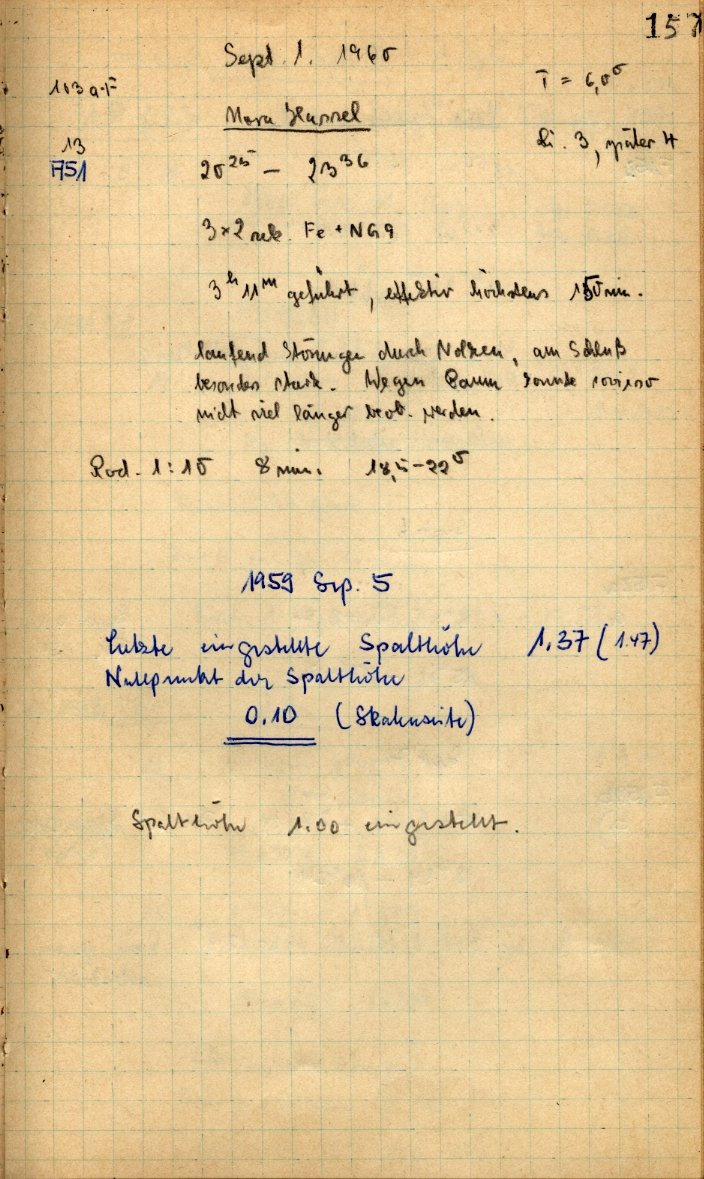 157
Sept. 1. 1960
103 a-F
T = 6,0°
Nova Hassel
13
Li. 3, später 4
A51
20 25 – 23 36
3×2 sek. Fe + NG9
3h 11m geführt, effektiv höchstens 150 min.
laufend Störungen durch Wolken, am Schluß
besonders stark. Wegen Baum konnte sowieso
nicht viel länger beob. werden.
1:10 8 min. 18,5–22°
1959 Sep. 5
letzte eingestellte Spalthöhe 1.37 (1.47)
Nullpunkt der Spalthöhe
0.10 (Skalenseite)
Spalthöhe 1.00 eingestellt.